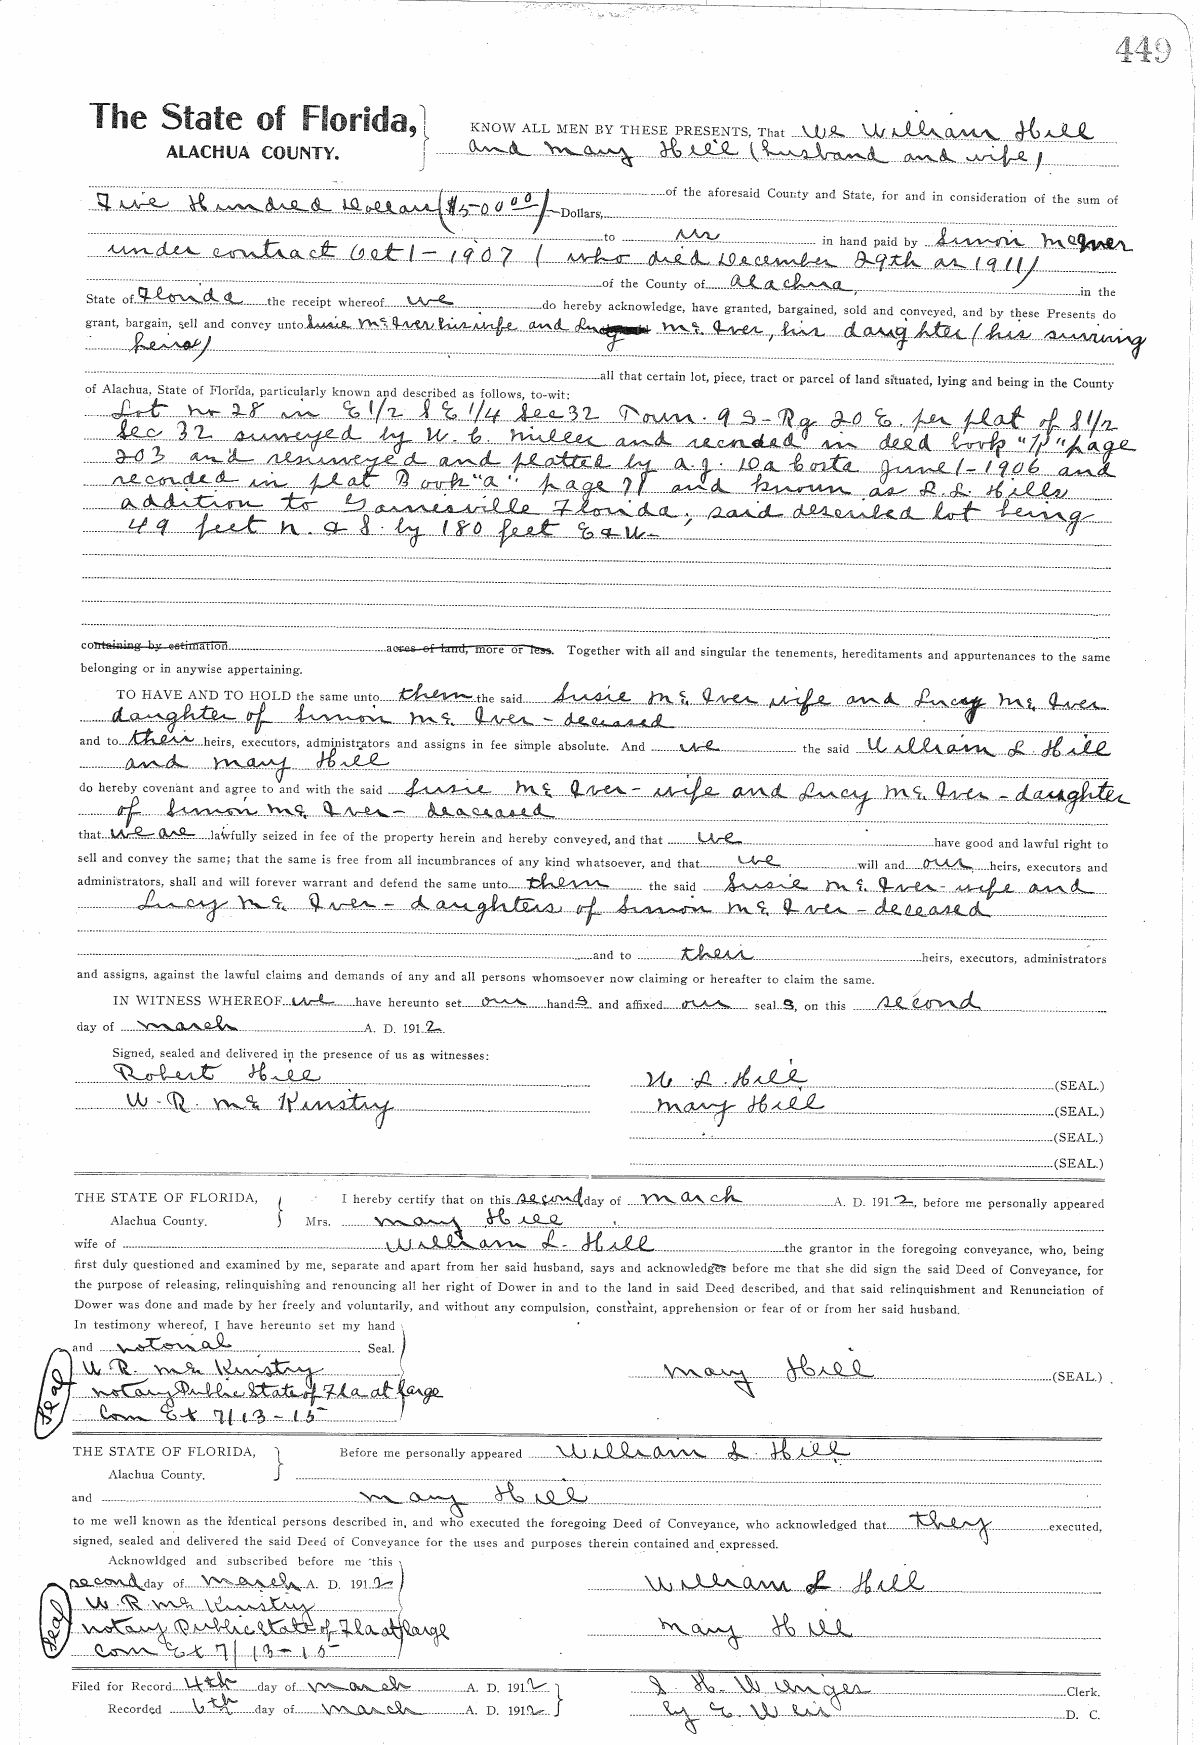 449
The State of Florida, KNOW ALL MEN BY THESE PRESENTS, That We William Hill
ALACHUA COUNTY. and Mary Hill (husband and wife)
of the aforesaid County and State, for and in consideration of the sum of
Five Hundred Dollars ($500 00) Dollars,
to us in hand paid by Simon McIver
under contract Oct 1 - 1907 ( who died December 29th as 1911)
of the County of Alachua, in the
State of Florida the receipt whereof we do hereby acknowledge, have granted, bargained, sold and conveyed, and by these Presents do
grant, bargain, sell and convey unto Susie Mc Iver his wife and Mc Iver, his daughter (his surviving
heirs)
all that certain lot, piece, tract or parcel of land situated, lying and being in the County
of Alachua, State of Florida, particularly known and described as follows, to-wit:
Lot no 28 in E 1/2 S E 1/4 Sec 32 Town. 9 S - Rg 20 E. per plat of S 1/2
Sec 32 surveyed by W. C. Miller and recorded in deed book page
203 and resurveyed and platted by A. J. Da Costa June 1 - 1906 and
recorded in plat Book "a" page 71 and known as Hills
addition to Gainesville Florida; said described lot being
49 feet N. & S. by 180 feet E & W -
containing by estimation acres of land, more or less. Together with all and singular the tenements, hereditaments and appurtenances to the same
belonging or in anywise appertaining.
TO HAVE AND TO HOLD the same unto them the said Susie Mc Iver wife and Lucy Mc Iver
daughter of Simon Mc Iver - deceased
and to their heirs, executors, administrators and assigns in fee simple absolute. And we the said William L Hill
and Mary Hill
do hereby covenant and agree to and with the said Susie Mc Iver - wife and Lucy Mc Iver - daughter
of Simon Mc Iver - deaceased
that we are lawfully seized in fee of the property herein and hereby conveyed, and that we have good and lawful right to
sell and convey the same; that the same is free from all incumbrances of any kind whatsoever, and that we will and our heirs, executors and
administrators, shall and will forever warrant and defend the same unto them the said Susie Mc Iver - wife and
Lucy Mc Iver - daughters of Simon Mc Iver - deceased
and to their heirs, executors, administrators
and assigns, against the lawful claims and demands of any and all persons whomsoever now claiming or hereafter to claim the same.
IN WITNESS WHEREOF we have hereunto set our hands and affixed our seal s, on this second
day of March A. D. 1912
Signed, sealed and delivered in the presence of us as witnesses:
Robert Hill W. L. Hill (SEAL.)
W. R. Mc Kinstry Mary Hill (SEAL.)
(SEAL.)
(SEAL.)
THE STATE OF FLORIDA, I hereby certify that on this second day of March A. D. 1912, before me personally appeared
Alachua County. Mrs. Mary Hill
wife of William L. Hill the grantor in the foregoing conveyance, who, being
first duly questioned and examined by me, separate and apart from her said husband, says and acknowledges before me that she did sign the said Deed of Conveyance, for
the purpose of releasing, relinquishing and renouncing all her right of Dower in and to the land in said Deed described, and that said relinquishment and Renunciation of
Dower was done and made by her freely and voluntarily, and without any compulsion, constraint, apprehension or fear of or from her said husband.
In testimony whereof, I have hereunto set my hand
and notorial Seal.
W. R. Mc Kinstry Mary Hill (SEAL.)
Seal
Notary Public State of Fla at large
Com Ex 7/13-15
THE STATE OF FLORIDA, Before me personally appeared William L. Hill
Alachua County.
and Mary Hill
to me well known as the identical persons described in, and who executed the foregoing Deed of Conveyance, who acknowledged that they executed,
signed, sealed and delivered the said Deed of Conveyance for the uses and purposes therein contained and expressed.
Acknowldged and subscribed before me this
second day of March A. D. 1912 William L Hill
W. R Mc Kinstry
Seal
Notary Public State of Fla at large Mary Hill
Com Ex 7/13-15
Filed for Record 4th day of March A. D. 1912 Clerk.
Recorded 6th day of March A. D. 1912 by E. Weir D. C.